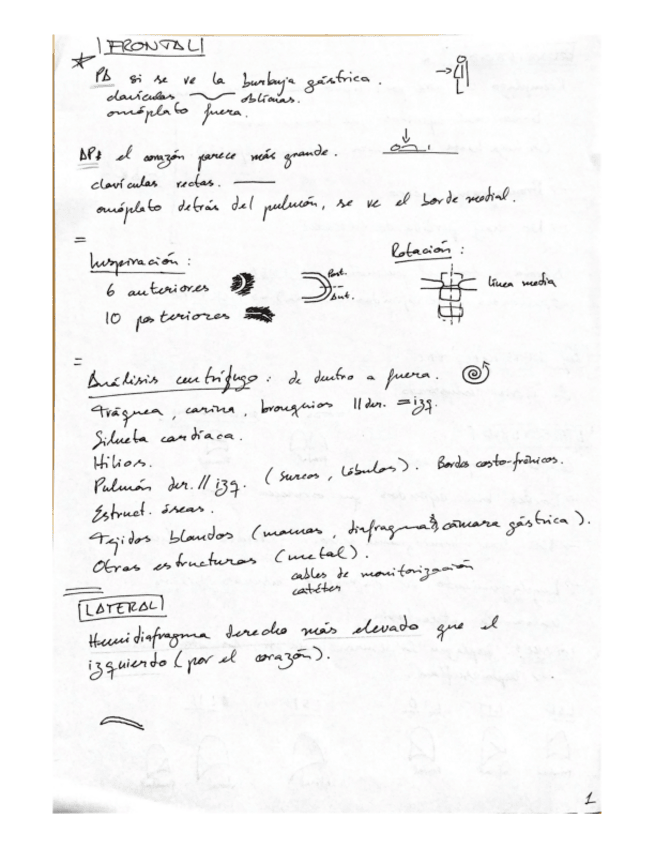 FRONTAL
PA si se ve la burbuja gástrica.
clavículas oblicuas.
omóplato fuera.
AP: el corazón parece más grande.
clavículas rectas.
omóplato detrás del pulmón, se ve el borde medial.
Inspiración:
6 anteriores
10 posteriores
Post.
Ant.
Rotación:
línea media
Análisis centrífugo: de dentro a fuera.
Tráquea, carina, bronquios // der. = izq.
Silueta cardíaca.
Hilios.
Pulmón der. // izq. (surcos, lóbulos). Bordes costo-frénicos.
Estruct. óseas.
Tejidos blandos (mamas, diafragma, cámara gástrica).
Otras estructuras (metal).
cables de monitorización
catéter
LATERAL
Hemidiafragma derecho más elevado que el
izquierdo (por el corazón).
1